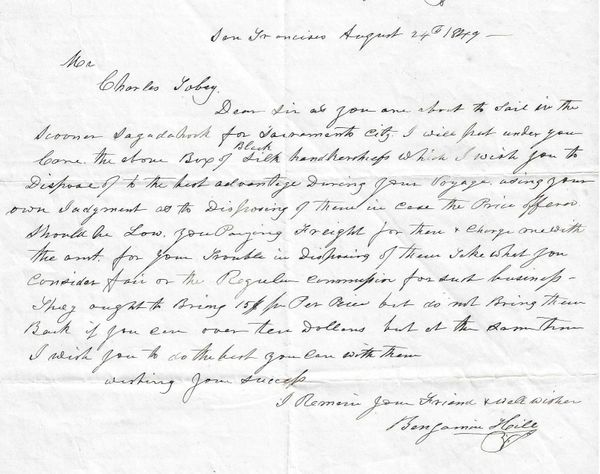 San Francisco August 24th 1849 —
Mr
Charles Tobey.
Dear Sir as you are about to Sail in the
Scooner Sagadahock for Sacramento City. I will put under you
Care. the above Box of Black Silk handkercheifs which I wish you to
Dispose of to the best advantage During your Voyage, using your
own Judgment as to Disposing of them in case the Price offered
Should be Low. you Paying Freight for them & Charge me with
the amt. for your Trouble in disposing of them Take what you
Consider fair or the Regular Commission for such business —
They ought to Bring 15$ Per Piece but do not Bring them
Back if you can over ten Dollars but at the same time
I wish you to do the best you can with them
wishing your success
I Remain your Friend & well wisher
Benjamin Hill